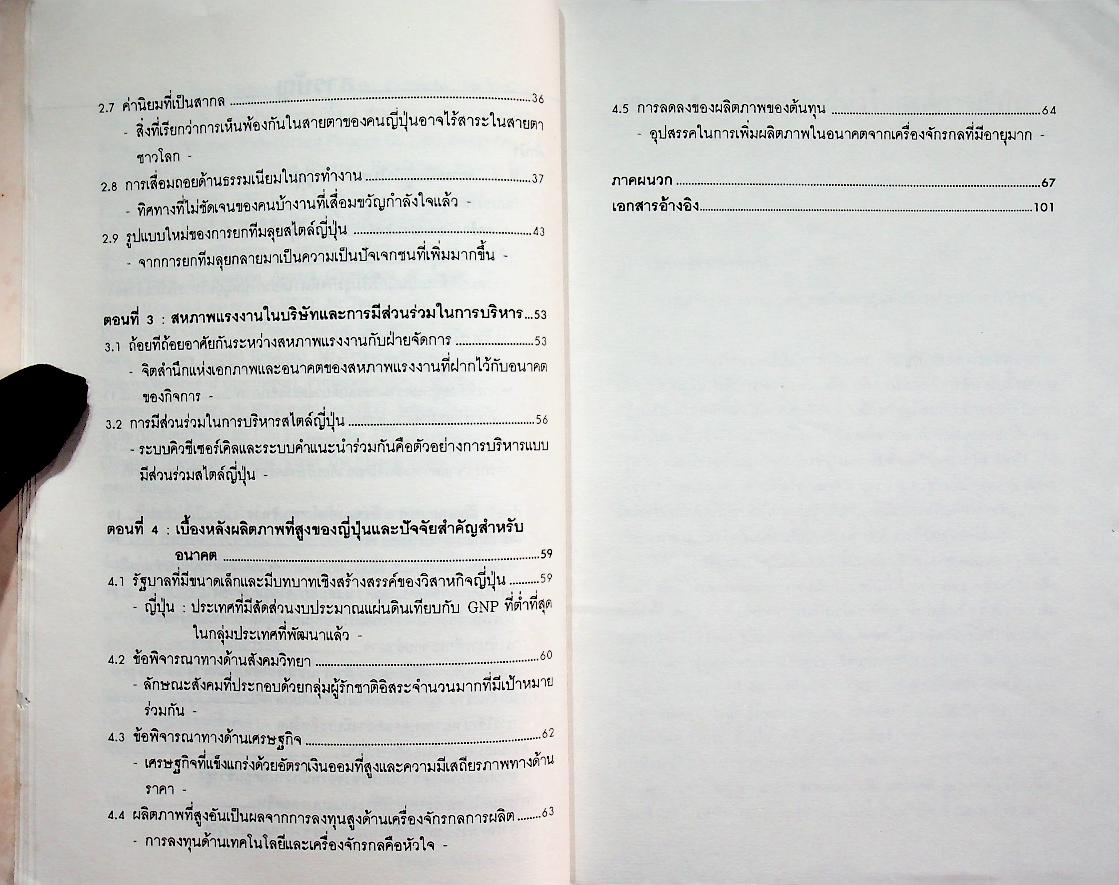 2.7 ค่านิยมที่เป็นสากล ........................................36
- สิ่งที่เรียกว่าการเห็นพ้องกันในสายตาของคนญี่ปุ่นอาจไร้สาระในสายตา
ชาวโลก -
2.8 การเสื่อมถอยด้านธรรมเนียมในการทำงาน ........................................37
- ทิศทางที่ไม่ชัดเจนของคนบ้างานที่เสื่อมขวัญกำลังใจแล้ว -
2.9 รูปแบบใหม่ของการยกทีมลุยสไตล์ญี่ปุ่น ........................................43
- จากการยกทีมลุยกลายมาเป็นความเป็นปัจเจกชนที่เพิ่มมากขึ้น -
ตอนที่ 3 : สหภาพแรงงานในบริษัทและการมีส่วนร่วมในการบริหาร...53
3.1 ถ้อยทีถ้อยอาศัยกันระหว่างสหภาพแรงงานกับฝ่ายจัดการ ....................53
- จิตสำนึกแห่งเอกภาพและอนาคตของสหภาพแรงงานที่ฝากไว้กับอนาคต
ของกิจการ -
3.2 การมีส่วนร่วมในการบริหารสไตล์ญี่ปุ่น ........................................56
- ระบบคิวซีเซอร์เคิลและระบบคำแนะนำร่วมกันคือตัวอย่างการบริหารแบบ
มีส่วนร่วมสไตล์ญี่ปุ่น -
ตอนที่ 4 : เบื้องหลังผลิตภาพที่สูงของญี่ปุ่นและปัจจัยสำคัญสำหรับ
อนาคต ........................................59
4.1 รัฐบาลที่มีขนาดเล็กและมีบทบาทเชิงสร้างสรรค์ของวิสาหกิจญี่ปุ่น .........59
- ญี่ปุ่น : ประเทศที่มีสัดส่วนงบประมาณแผ่นดินเทียบกับ GNP ที่ต่ำที่สุด
ในกลุ่มประเทศที่พัฒนาแล้ว -
4.2 ข้อพิจารณาทางด้านสังคมวิทยา ........................................60
- ลักษณะสังคมที่ประกอบด้วยกลุ่มผู้รักชาติอิสระจำนวนมากที่มีเป้าหมาย
ร่วมกัน -
4.3 ข้อพิจารณาทางด้านเศรษฐกิจ ........................................62
- เศรษฐกิจที่แข็งแกร่งด้วยอัตราเงินออมที่สูงและความมีเสถียรภาพทางด้าน
ราคา -
4.4 ผลิตภาพที่สูงอันเป็นผลจากการลงทุนสูงด้านเครื่องจักรกลการผลิต .......63
- การลงทุนด้านเทคโนโลยีและเครื่องจักรกลคือหัวใจ -
4.5 การลดลงของผลิตภาพของต้นทุน ........................................64
- อุปสรรคในการเพิ่มผลิตภาพในอนาคตจากเครื่องจักรกลที่มีอายุมาก -
ภาคผนวก ........................................67
เอกสารอ้างอิง........................................101